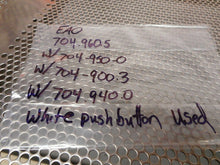 EAO
704.960.5
W/ 704-950.0
W/ 704-900.3
W/ 704.940.0
White pushbutton used